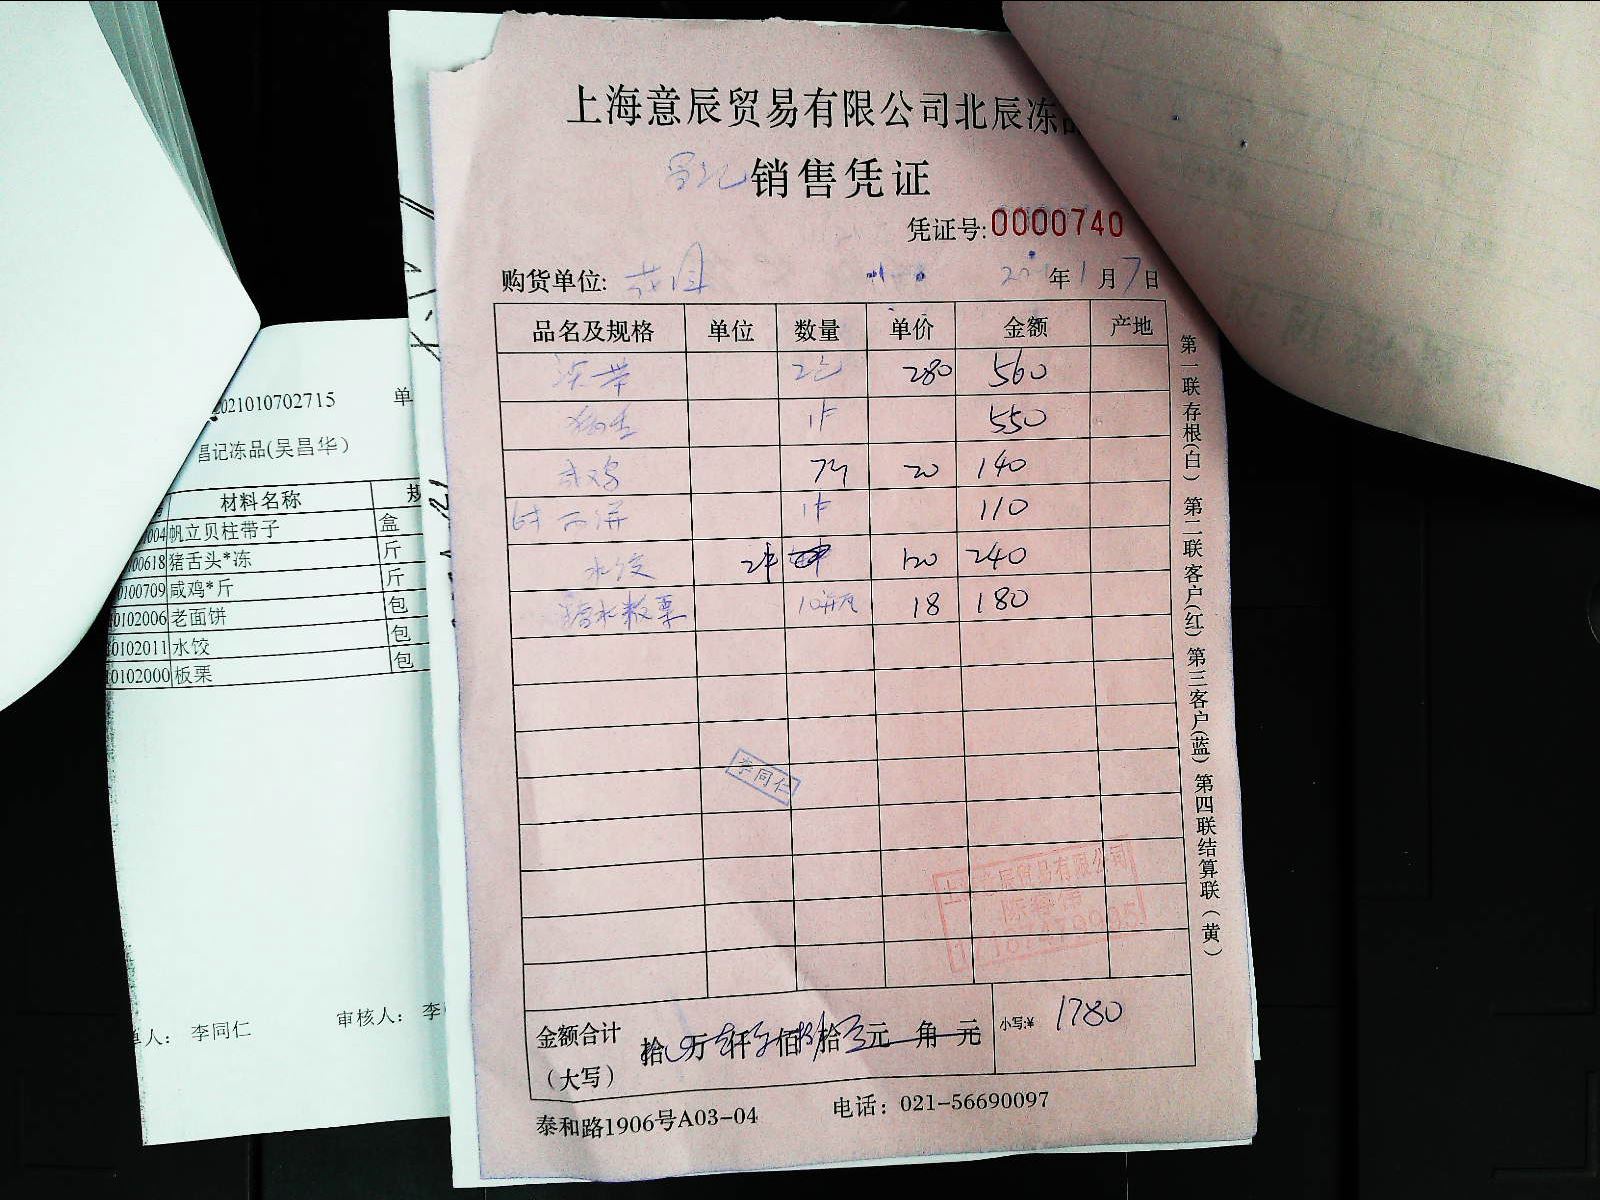 上海意辰贸易有限公司北辰冻
昌记 销售凭证
凭证号:0000740
购货单位: 年1月7日
品名及规格 单位 数量 单价 金额 产地
2包 280 560
1件 550
咸鸡 7 20 140
面饼 1件 110
水饺 2件 120 240
糖水板栗 18 180
李同仁
贸易有限公司
金额合计
(大写)
拾 万 仟 佰 拾 元 角 元
小写:¥ 1780
泰和路1906号A03-04 电话: 021-56690097
第一联存根(白) 第二联客户(红) 第三客户(蓝) 第四联结算联(黄)
2021010702715 单
昌记冻品(吴昌华)
材料名称 规
004 帆立贝柱带子 盒
00618 猪舌头*冻 斤
0100709 咸鸡*斤 斤
0102006 老面饼 包
0102011 水饺 包
0102000 板栗 包
单人: 李同仁 审核人: 李